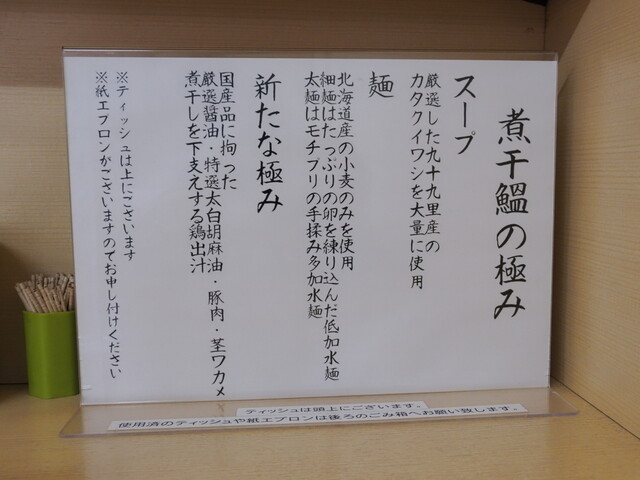 煮干鰮の極み
スープ
厳選した九十九里産の
カタクイワシを大量に使用
麺
北海道産の小麦のみを使用
細麺はたっぷりの卵を練り込んだ低加水麺
太麺はモチプリの手揉み多加水麺
新たな極み
国産品に拘った
厳選醤油・特選太白胡麻油・豚肉・茎ワカメ
煮干しを下支えする鶏出汁
※ティッシュは上にございます
※紙エプロンがございますのでお申し付けください
ティッシュは頭上にございます。
使用済のティッシュや紙エプロンは後ろのごみ箱へお願い致します。